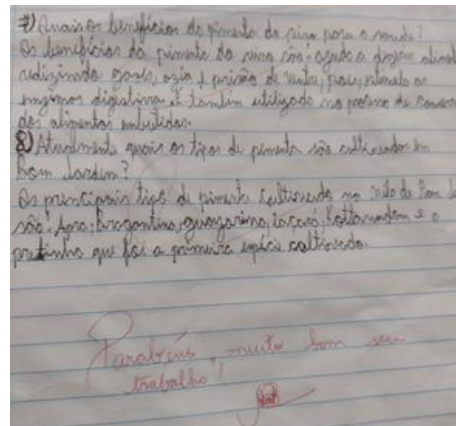 7) Quais os benefícios da pimenta do reino para a saúde?
Os benefícios da pimenta do reino são: ajuda a digerir
gases, azia e prisão de ventre, pois, estimula as
enzimas digestivas. É também utilizado no processo de
dos alimentos embutidos.
8) Atualmente quais os tipos de pimenta são cultivados em
Bom Jardim?
Os principais tipos de pimenta cultivado na vila de Bom
são: Apra, Bragantina, guajarina, iaçará, kottanadan e a
pretinha que foi a primeira espécie cultivado.
Parabéns, muito bom seu
trabalho!